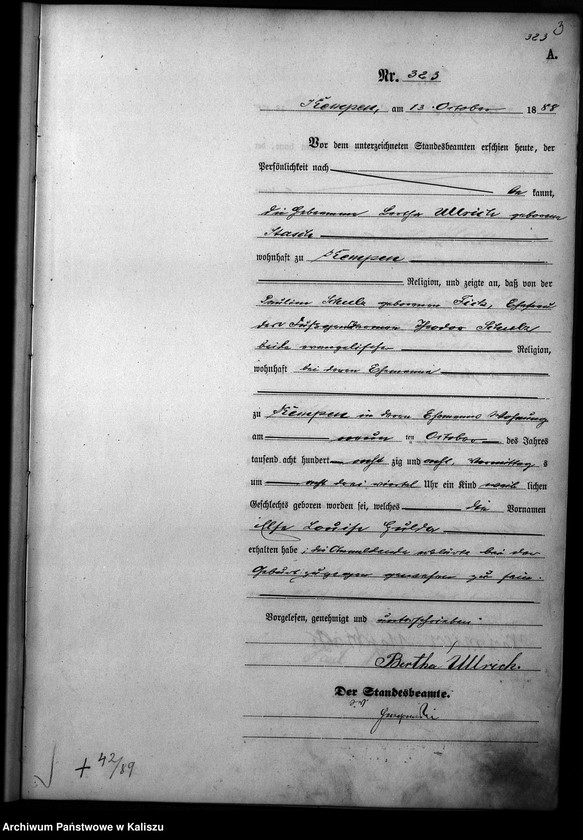 323 3
A.
Nr. 323
Kempen, am 13 October 1888
Vor dem unterzeichneten Standesbeamten erschien heute, der
Persönlichkeit nach
be kannt,
die Hebeamme Bertha Ullrich geborene
wohnhaft zu Kempen
Religion, und zeigte an, daß von der
Pauline geborenen Tietz, Ehefrau
des Fußgendarmen Theodor
beide evangelischer Religion,
wohnhaft bei deren Ehemanne
zu Kempen in deren Ehemanns Wohnung
am neun ten October des Jahres
tausend acht hundert acht zig und acht, Vormittag s
um acht drei viertel Uhr ein Kind weib lichen
Geschlechts geboren worden sei, welches die Vornamen
Else Louise Hulda
erhalten habe; die Anmeldende erklärte bei der
Geburt zugegen gewesen zu sein.
Vorgelesen, genehmigt und unterschrieben
Bertha Ullrich.
Der Standesbeamte.
+ 42/89
Archiwum Państwowe w Kaliszu